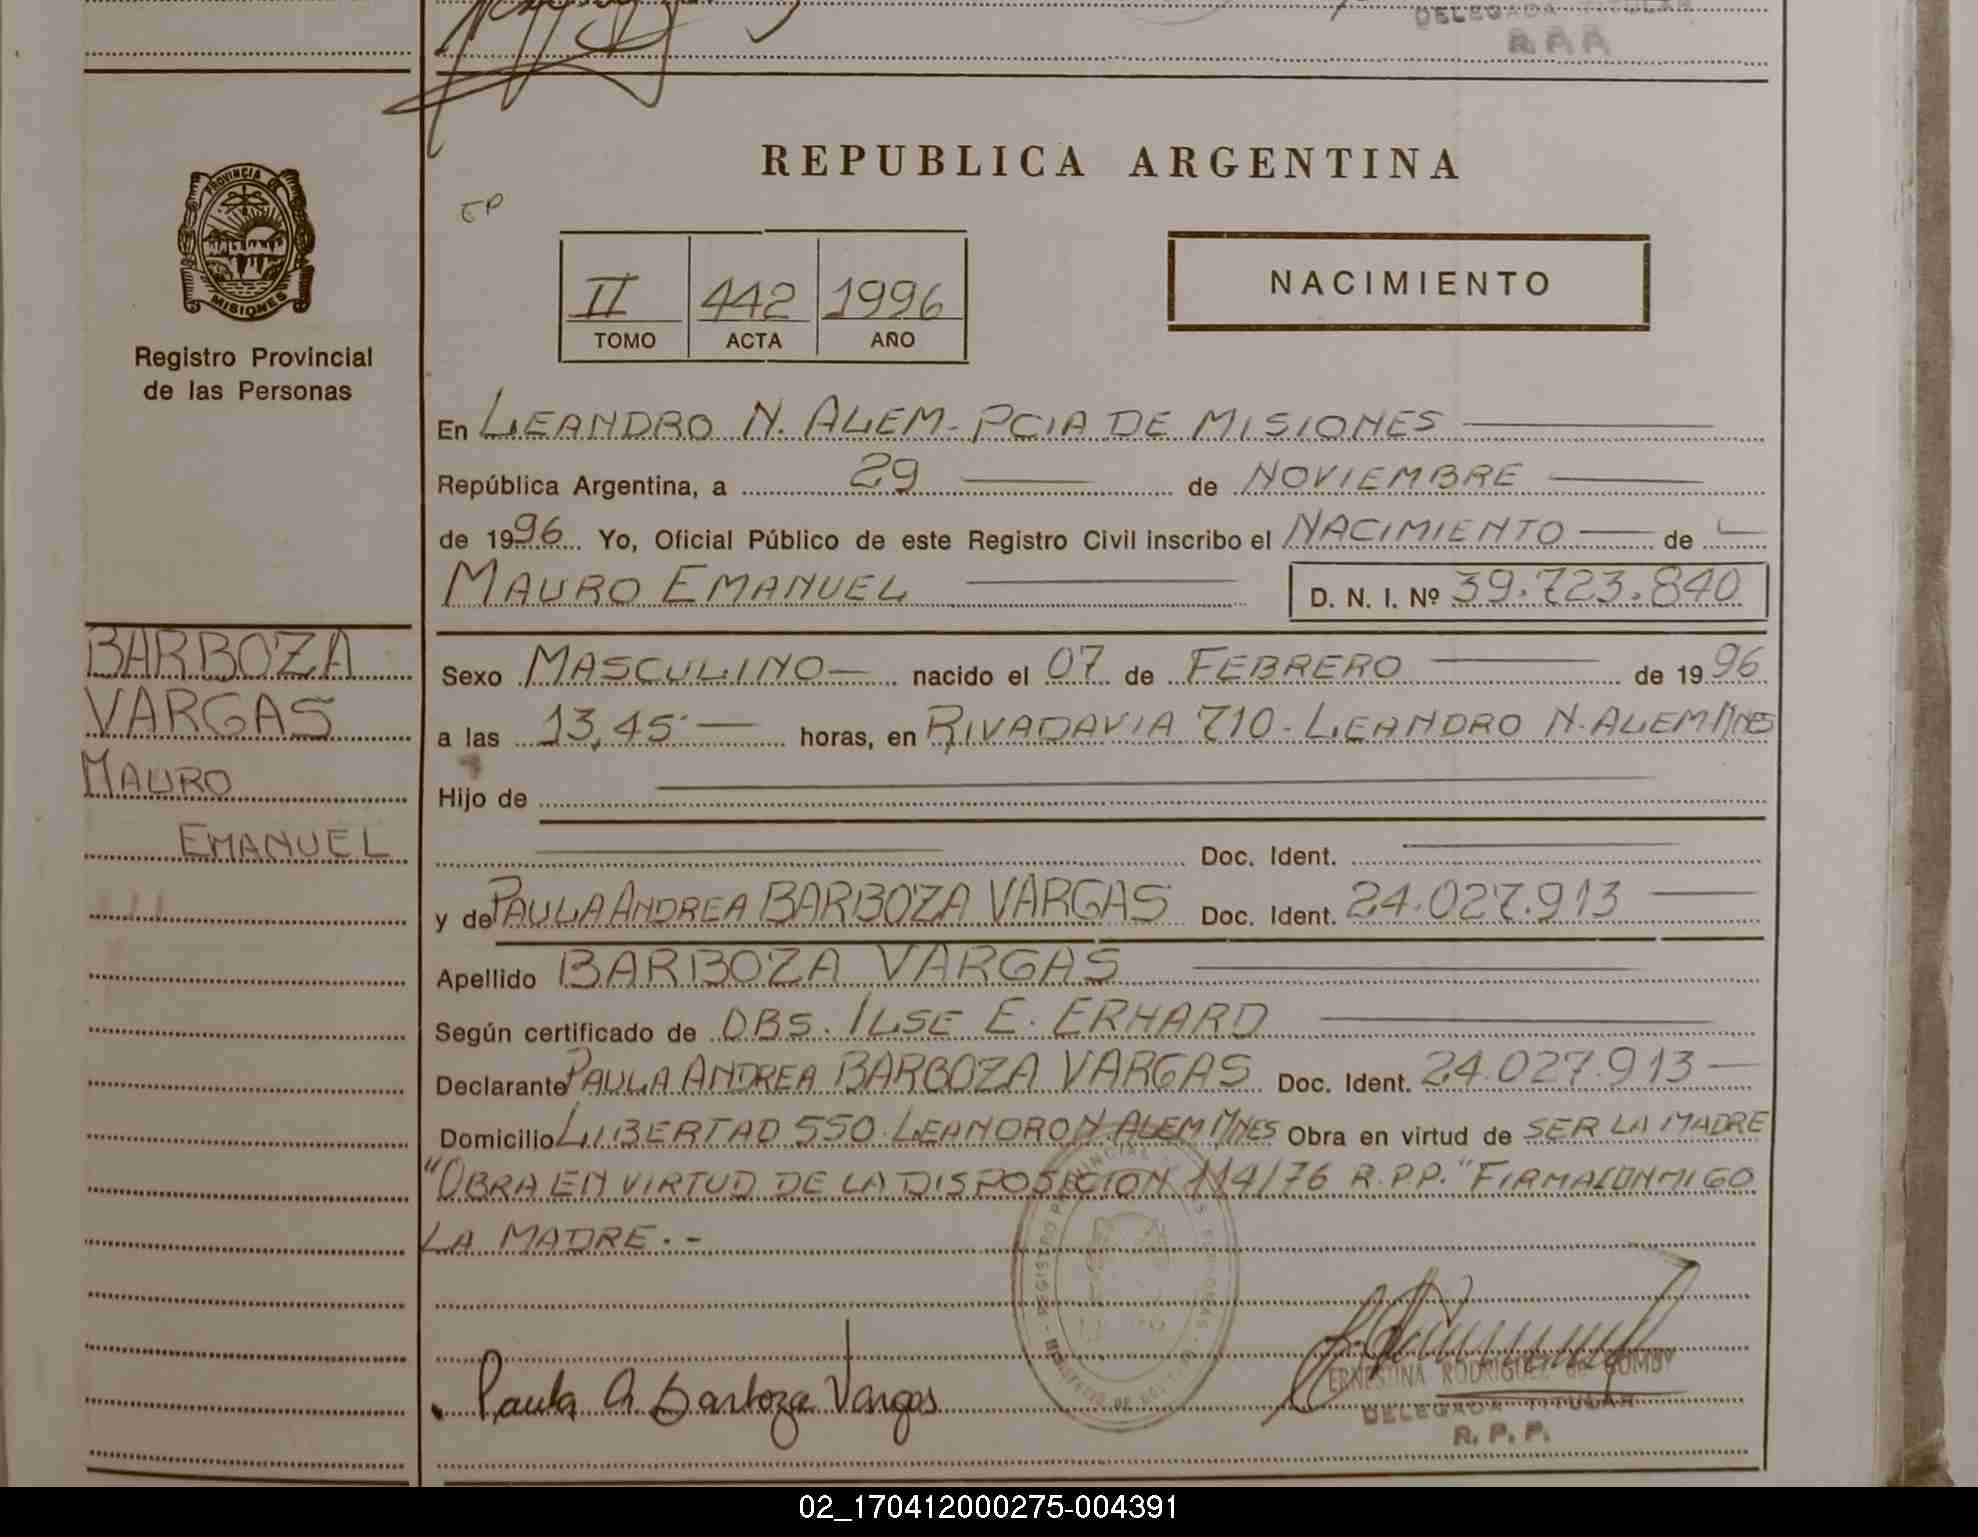 DELEGADA TITULAR
REPUBLICA ARGENTINA
PROVINCIA DE
MISIONES
Registro Provincial
de las Personas
EP
II 442 1996
TOMO ACTA AÑO
NACIMIENTO
En LEANDRO N. ALEM - PCIA DE MISIONES
República Argentina, a 29 de NOVIEMBRE
de 1996 Yo, Oficial Público de este Registro Civil inscribo el NACIMIENTO de
MAURO EMANUEL D. N. I. Nº 39.723.840
BARBOZA
VARGAS
MAURO
EMANUEL
Sexo MASCULINO nacido el 07 de FEBRERO de 1996
a las 13,45 horas, en RIVADAVIA 710 - LEANDRO N. ALEM MNES
Hijo de
Doc. Ident.
y de PAULA ANDREA BARBOZA VARGAS Doc. Ident. 24.027.913
Apellido BARBOZA VARGAS
Según certificado de OBS. ILSE E. ERHARD
Declarante PAULA ANDREA BARBOZA VARGAS Doc. Ident. 24.027.913
Domicilio LIBERTAD 550 LEANDRO N. ALEM MNES Obra en virtud de SER LA MADRE
"OBRA EN VIRTUD DE LA DISPOSICION 114/76 R.P.P." FIRMA CONMIGO
LA MADRE.-
Paula A Barboza Vargas
ERNESTINA RODRIGUEZ de
DELEGADA TITULAR
R. P. P.
02_170412000275-004391